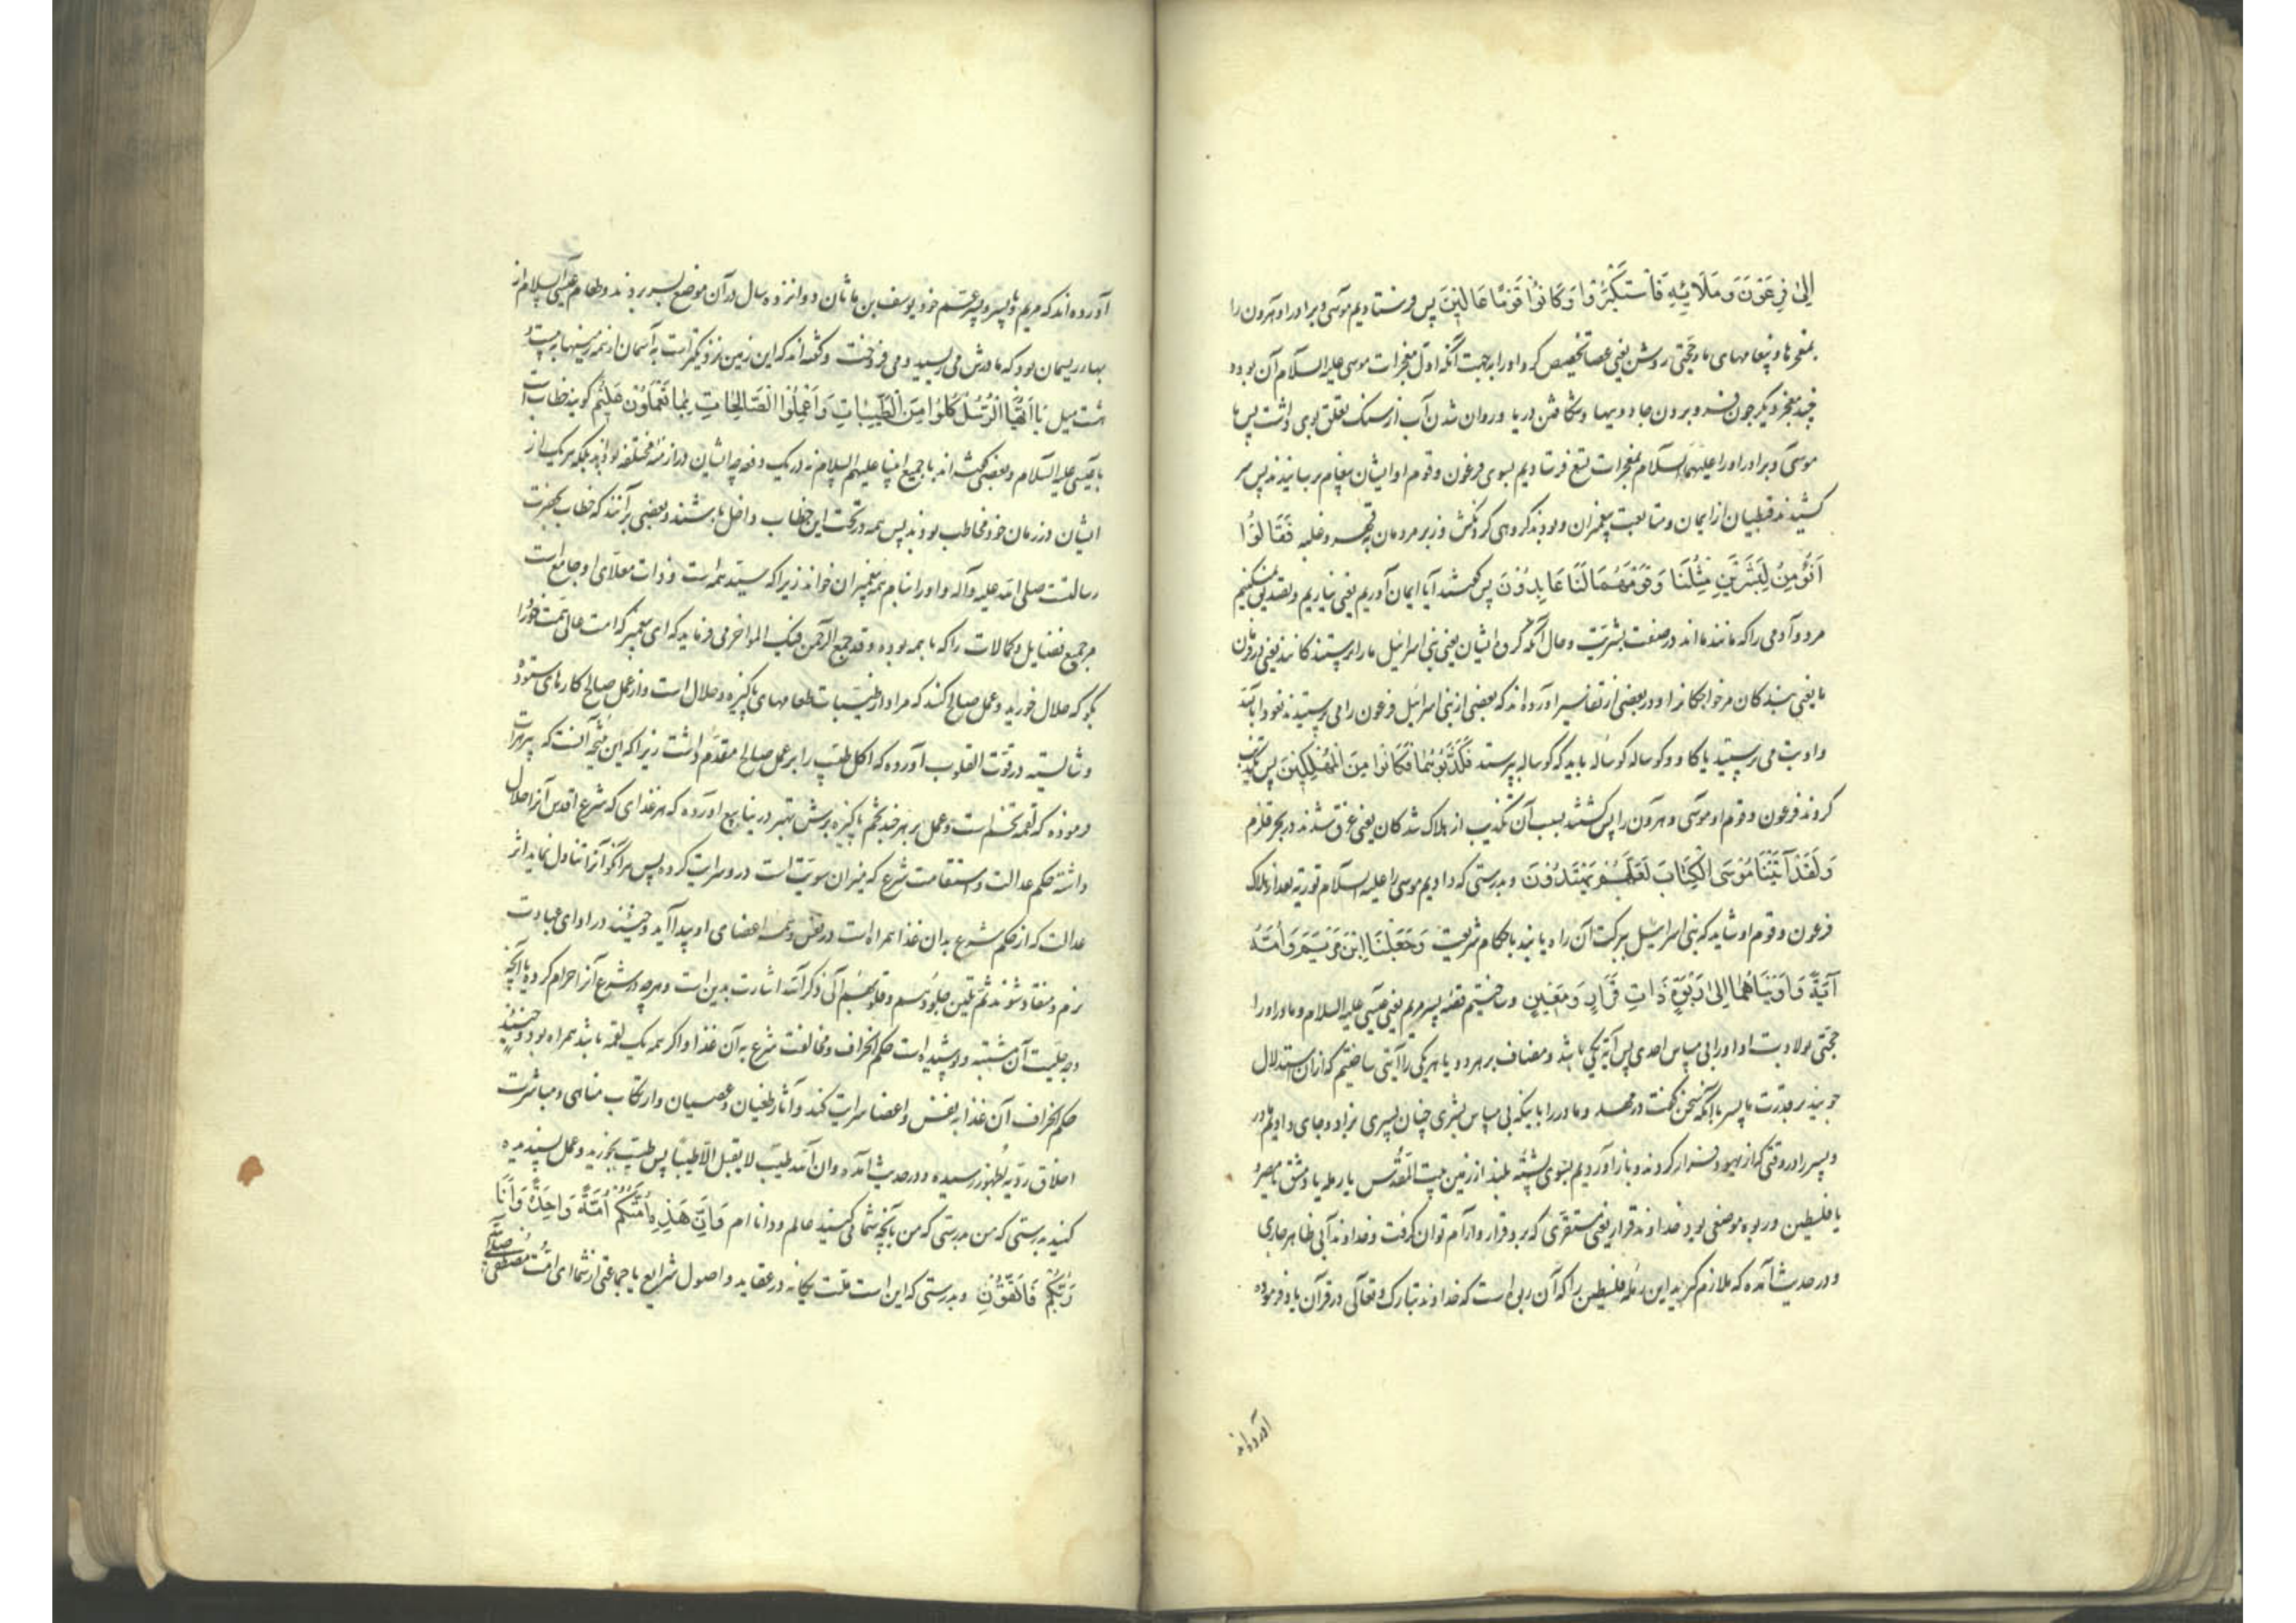 اِلىٰ فِرْعَوْنَ وَمَلَائِهِ فَاسْتَكْبَرُوا وَكَانُوا قَوْمًا عَالِينَ پس فرستادیم موسی و برادر او هرون را
بمعجزها و پیغامهای ما و حجتی روشن یعنی عصا تخصیص کرد او را بجهت آنکه اول معجزات موسی علیه السلام آن بود و
چند معجز دیگر چون فرو بردن جادویها و شکافتن دریا و روان شدن آب از سنک تعلق بوی داشت پس ما
موسی و برادر او را علیهما السلام بمعجزات تسع فرستادیم بسوی فرعون و قوم او ایشان پیغام برسانیدند پس سر
کشیدند قبطیان از ایمان و متابعت پیغمبران و بودند کروهی کردنکش و زبر مردمان بقهر و غلبه فَقَالُوا
اَنُؤْمِنُ لِبَشَرَيْنِ مِثْلِنَا وَقَوْمُهُمَا لَنَا عَابِدُونَ پس کفتند آیا ایمان آوریم یعنی نیاریم و تصدیق نکنیم
مر دو آدمی را که مانند مااند در صفت بشریت و حال آنکه کروه ایشان یعنی بنی اسرائیل ما را پرستندکانند یعنی
ما یعنی بندکان مر خواجکانرا و در بعضی از تفاسیر آورده‌اند که بعضی از بنی اسرائیل فرعون را می پرستیدند نعوذ بالله
و او بت می پرستید یا کاو و کوساله کوساله باید که کوساله پرستد فَكَذَّبُوهُمَا فَكَانُوا مِنَ الْمُهْلَكِينَ پس تکذیب
کردند فرعون و قوم او موسی و هرون را پس کشتند بسبب آن تکذیب از هلاک شدکان یعنی غرق شدند در بحر قلزم
وَلَقَدْ آتَيْنَا مُوسَى الْكِتَابَ لَعَلَّهُمْ يَهْتَدُونَ و بدرستی که دادیم موسی را علیه السلام توریة بعد از هلاک
فرعون و قوم او شاید که بنی اسرائیل ببرکت آن راه یابند باحکام شریعت وَجَعَلْنَا ابْنَ مَرْيَمَ وَاُمَّهُ
آيَةً وَآوَيْنَاهُمَا اِلىٰ رَبْوَةٍ ذَاتِ قَرَارٍ وَمَعِينٍ و ساختیم قصه پسر مریم یعنی عیسی علیه السلام و مادر او را
حجتی بولادت او او را بی مساس احدی پس آیة یکی باشد و مضاف بر هر دو یا هر یکی را آیتی ساختیم که از آن استدلال
جویند بر قدرت ما پسر بآنکه سخن کفت در مهد و مادر را باینکه بی مساس بشری چنان پسری بزاد و جای دادیم مادر
و پسر را در وقتی که از یهود فرار کردند و باز آوردیم بسوی پشته بلند از زمین بیت المقدس یا رمله یا دمشق یا مصر و
یا فلسطین و ربوه موضعی بود خداوند قرار یعنی مستقری که بر و قرار و آرام توان کرفت و خداوند آبی ظاهر جاری
و در حدیث آمده که ملازم کیرید این رمله فلسطین را که آن ربی است که خداوند تبارک و تعالی در قرآن یاد فرموده
آورده‌اند
آورده‌اند که مریم با پسر و پسر عم خود یوسف بن ماثان دوانزده سال در آن موضع بسر بردند و طعام عیسی علیه السلام از
بهاء ریسمان بود که مادرش می ریسید و می فروخت و کفته‌اند که این زمین نزدیکتر است به آسمان از همه زمینها به بیست و
هشت میل يَا اَيُّهَا الرُّسُلُ كُلُوا مِنَ الطَّيِّبَاتِ وَاعْمَلُوا الصَّالِحَاتِ بِمَا تَعْمَلُونَ عَلِيمٌ کویند خطاب است
با عیسی علیه السلام و بعضی کفته‌اند با جمیع انبیا علیهم السلام نه در یک دفعه چه ایشان در ازمنه مختلفه بودند بلکه هر یک از
ایشان در زمان خود مخاطب بودند پس همه در تحت این خطاب داخل باشند و بعضی برآنند که خطاب بحضرت
رسالتست صلی الله علیه و آله و او را بنام همه پیغمبران خواند زیرا که سید همه است و ذات معلای او جامع است
مر جمیع فضایل و کمالات را که با همه بوده و قد جمع الرحمن فیک المفاخر می فرماید که ای پیغمبر که امت عالی همت خود را
بکو که حلال خورید و عمل صالح کنند که مراد از طیبات طعامهای پاکیزه و حلال است و از عمل صالح کارهای ستوده
و شایسته در قوت القلوب آورده که اکل طیب را بر عمل صالح مقدم داشت زیرا که این نتیجه آنست که پیر هرات
فرموده که لقمه تخم است و عمل بر هر چند تخم پاکیزه برش بهتر در ینابیع آورده که هر غذای که شرع اقدس آنرا حلال
داشته حکم عدالت و استقامت شرع که میزان سویت است در و سرایت کرده پس هر آنکو آنرا تناول نماید اثر
عدالت که از حکم شرع بدان غذا همراه است در نفس و همه اعضای او پیدا آید و حینئذ در ادای عبادت
نرم و منقاد شوند ثم تلین جلودهم و قلوبهم الی ذکر الله اشارت بدین است و هرچه در شرع آنرا حرام کرده یا آنچه
وجه حلیت آن مشتبه و پوشیده است حکم انحراف و مخالفت شرع به آن غذا و اکر همه یک لقمه باشد همراه بود و حینئذ
حکم انحراف آن غذا به نفس و اعضا سرایت کند و آثار طغیان و عصیان و ارتکاب مناهی و مباشرت
اخلاق ردیه بظهور رسیده و در حدیث آمده و ان الله طیب لا یقبل الا طیبا پس طیب بخورید و عمل پسندیده
کنید بدرستی که من بدرستی که من بآنچه شما می کنید عالم و داناام وَاِنَّ هَذِهِ اُمَّتُكُمْ اُمَّةً وَاحِدَةً وَاَنَا
رَبُّكُمْ فَاتَّقُونِ و بدرستی که این است ملت یکانه در عقاید و اصول شرایع یا جماعتی از شما ای امت مصطفی